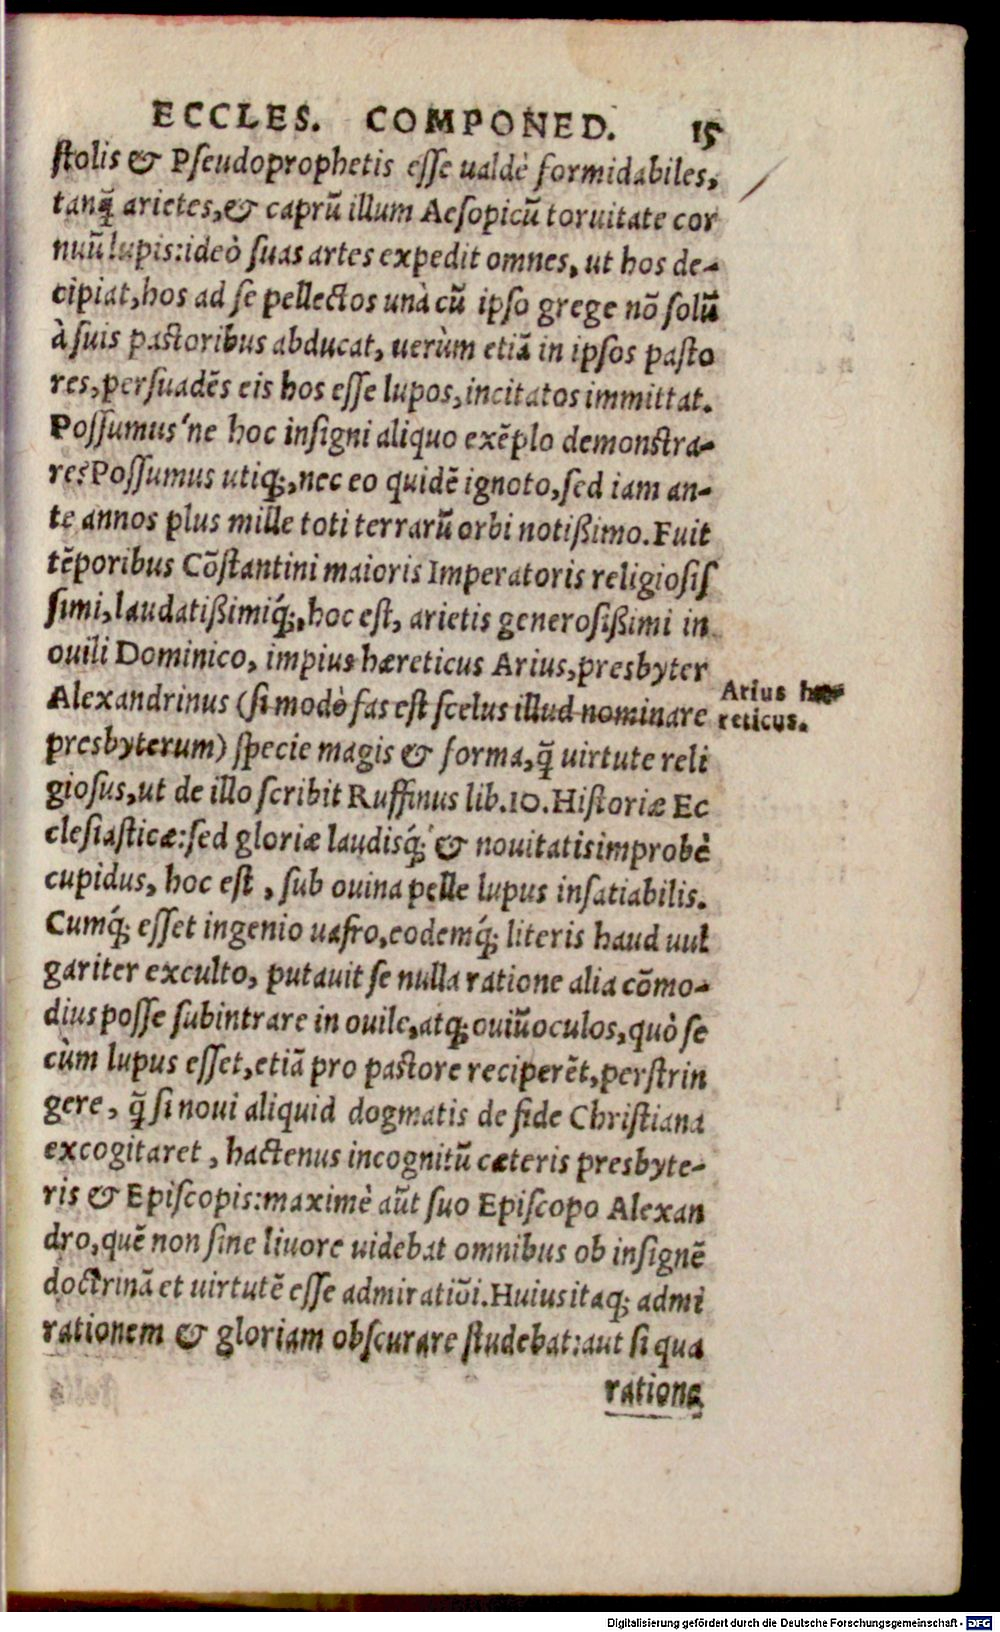 ECCLES. COMPONED. 15
ſtolis & Pſeudoprophetis eſſe ualdè formidabiles,
tanq̃ arietes, & caprũ illum Aeſopicũ toruitate cor
nuũ lupis: ideò ſuas artes expedit omnes, ut hos de-
cipiat, hos ad ſe pellectos unà cũ ipſo grege nõ ſolũ
à ſuis paſtoribus abducat, uerùm etiã in ipſos paſto
res, perſuadẽs eis hos eſſe lupos, incitatos immittat.
Poſſumus'ne hoc inſigni aliquo exẽplo demonſtra-
re? Poſſumus utiq;, nec eo quidẽ ignoto, ſed iam an-
te annos plus mille toti terrarũ orbi notißimo. Fuit
tẽporibus Cõſtantini maioris Imperatoris religioſiſ
ſimi, laudatißimiq́;, hoc eſt, arietis generoſißimi in
ouili Dominico, impius hæreticus Arius, presbyter
Arius hæ-
reticus.
Alexandrinus (ſi modò fas eſt ſcelus illud nominare
presbyterum) ſpecie magis & forma, q̃ uirtute reli
gioſus, ut de illo ſcribit Ruffinus lib. 10. Hiſtoriæ Ec
cleſiaſticæ: ſed gloriæ laudisq́; & nouitatis improbè
cupidus, hoc eſt, ſub ouina pelle lupus inſatiabilis.
Cumq́; eſſet ingenio uafro, eodemq́; literis haud uul
gariter exculto, putauit ſe nulla ratione alia cõmo-
dius poſſe ſubintrare in ouile, atq; ouiũ oculos, quò ſe
cùm lupus eſſet, etiã pro paſtore reciperẽt, perſtrin
gere, q̃ ſi noui aliquid dogmatis de fide Chriſtiana
excogitaret, hactenus incognitũ cæteris presbyte-
ris & Epiſcopis: maximè aũt ſuo Epiſcopo Alexan
dro, quẽ non ſine liuore uidebat omnibus ob inſignẽ
doctrinã et uirtutẽ eſſe admiratiõi. Huius itaq; admi
rationem & gloriam obſcurare ſtudebat: aut ſi qua
ratione
Digitalisierung gefördert durch die Deutsche Forschungsgemeinschaft - DFG